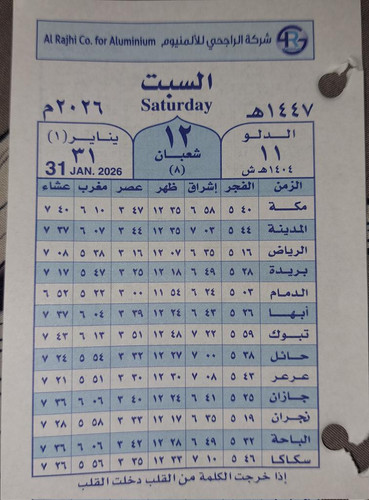 شركة الراجحي للألمنيوم Al Rajhi Co. for Aluminium
السبت
١٤٤٧هـ Saturday ٢٠٢٦م
الدلو ١٢ يناير (١)
١١ شعبان ٣١
١٤٠٤هـ ش (٨) 31 JAN. 2026
الزمن الفجر إشراق ظهر عصر مغرب عشاء
مكة ٤٠ ٥ ٥٨ ٦ ٣٥ ١٢ ٤٧ ٣ ١٠ ٦ ٤٠ ٧
المدينة ٤٤ ٥ ٠٣ ٧ ٣٥ ١٢ ٤٤ ٣ ٠٧ ٦ ٣٧ ٧
الرياض ١٦ ٥ ٣٥ ٦ ٠٧ ١٢ ١٦ ٣ ٣٨ ٥ ٠٨ ٧
بريدة ٢٨ ٥ ٤٩ ٦ ١٨ ١٢ ٢٥ ٣ ٤٧ ٥ ١٧ ٧
الدمام ٠٣ ٥ ٢٤ ٦ ٥٤ ١١ ٠٠ ٣ ٢٢ ٥ ٥٢ ٦
أبها ٢٦ ٥ ٤٣ ٦ ٢٤ ١٢ ٣٩ ٣ ٠٤ ٦ ٣٤ ٧
تبوك ٥٩ ٥ ٢٢ ٧ ٤٨ ١٢ ٥١ ٣ ١٣ ٦ ٤٣ ٧
حائل ٣٨ ٥ ٠٠ ٧ ٢٧ ١٢ ٣٢ ٣ ٥٤ ٥ ٢٤ ٧
عرعر ٤٣ ٥ ٠٨ ٧ ٣٠ ١٢ ٣٠ ٣ ٥١ ٥ ٢١ ٧
جازان ٢٥ ٥ ٤١ ٦ ٢٤ ١٢ ٤٠ ٣ ٠٦ ٦ ٣٦ ٧
نجران ١٩ ٥ ٣٥ ٦ ١٧ ١٢ ٣٣ ٣ ٥٨ ٥ ٢٨ ٧
الباحة ٣٢ ٥ ٤٩ ٦ ٢٨ ١٢ ٤٢ ٣ ٠٦ ٦ ٣٦ ٧
سكاكا ٤٦ ٥ ١٠ ٧ ٣٣ ١٢ ٣٥ ٣ ٥٦ ٥ ٢٦ ٧
إذا خرجت الكلمة من القلب دخلت القلب